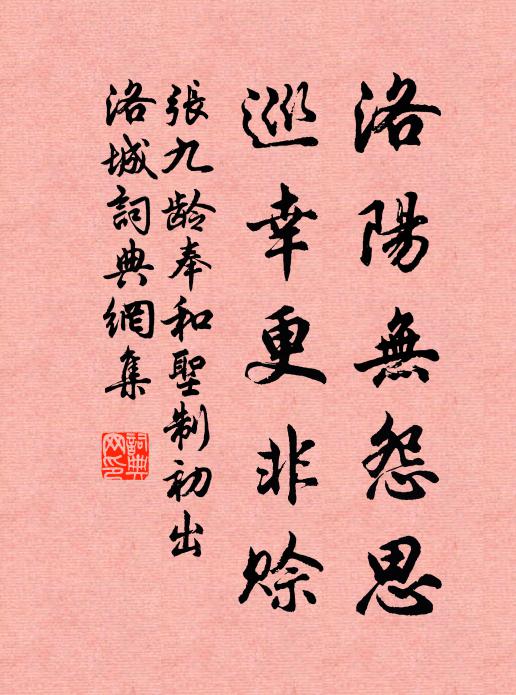 洛陽無怨思
巡幸更非賒
張九龄奉和聖制初出
洛城詞典網集
詞典
网印